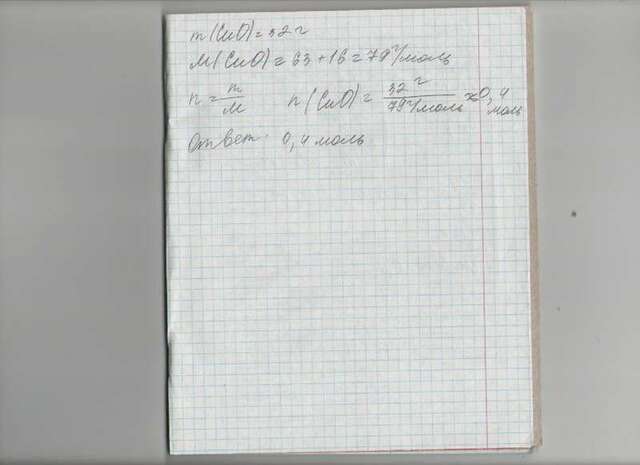 m(CuO)=32 г
M(CuO)=63+16=79 г/моль
n=m/M n(CuO)=32 г/79 г/моль≈0,4 моль
Ответ: 0,4 моль